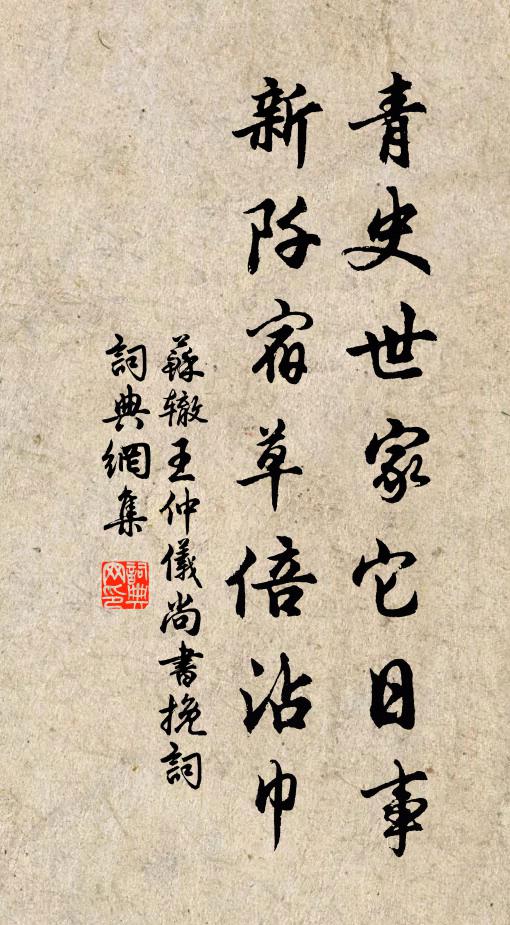 青史世家它日事
新阡宿草倍沾巾
蘇辙王仲儀尚書挽詞
詞典網集
詞典网印